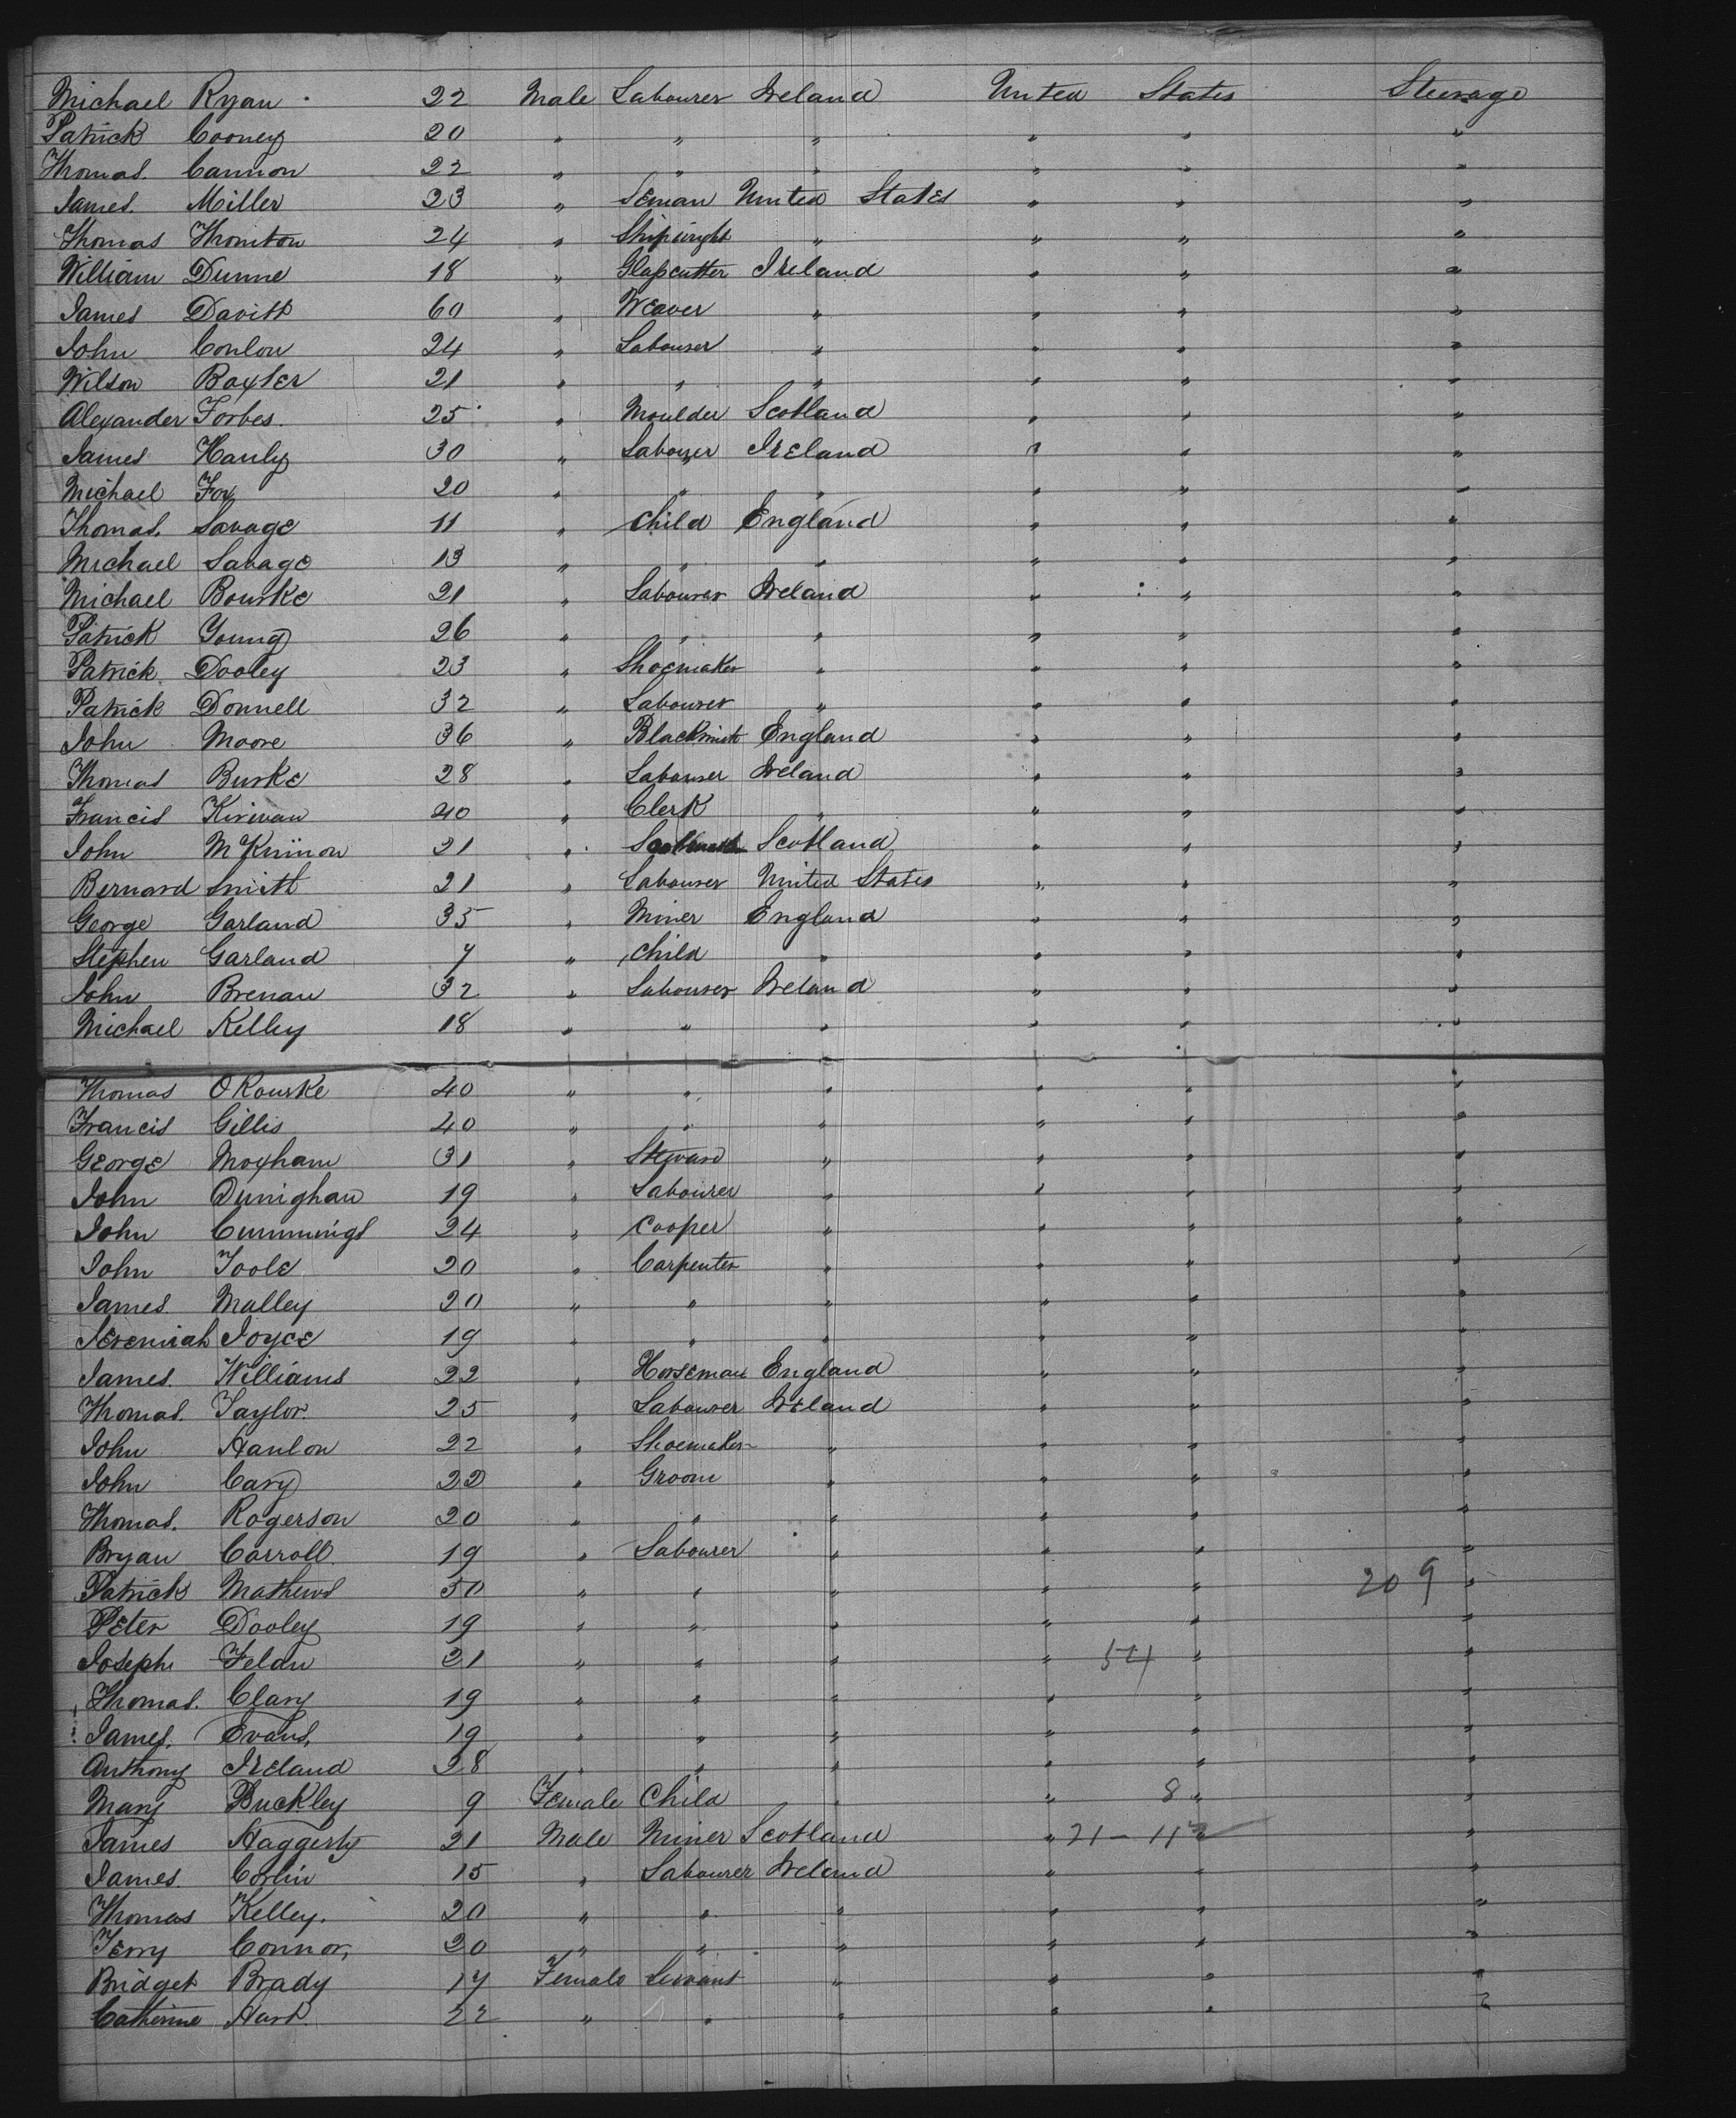 Michael Ryan 22 Male Labourer Ireland United States Steerage
Patrick Cooney 20 " " " " " "
Thomas. Cannon 22 " " " " " "
James. Miller 23 " Seman United States " " "
Thomas Thornton 24 " Shipwright " " " "
William Dunne 18 " Glasscutter Ireland " " "
James Davitt 60 " Weaver " " " "
John Conlon 24 " Labourer " " " "
Wilson Baxter 21 " " " " " "
Alexander Forbes. 25 " Moulder Scotland " " "
James Hanly 30 " Labourer Ireland " " "
Michael Fox 20 " " " " " "
Thomas. Savage 11 " Child England " " "
Michael Savage 13 " " " " " "
Michael Bourke 21 " Labourer Ireland " " "
Patrick Young 26 " " " " " "
Patrick Dooley 23 " Shoemaker " " " "
Patrick Donnell 32 " Labourer " " " "
John Moore 36 " Blacksmith England " " "
Thomas Burke 28 " Labourer Ireland " " "
Francis Kirwan 40 " Clerk " " " "
John McKinnon 21 " Scotland " " "
Bernard Smith 21 " Labourer United States " " "
George Garland 35 " Miner England " " "
Stephen Garland 7 " Child " " " "
John Brenan 32 " Labourer Ireland " " "
Michael Kelley 18 " " " " " "
Thomas O Rourke 40 " " " " " "
Francis Gillis 40 " " " " " "
George Moxham 31 " Steward " " " "
John Dunighan 19 " Labourer " " " "
John Cummings 24 " Cooper " " " "
John Toole 20 " Carpenter " " " "
James. Malley 20 " " " " " "
Jeremiah Joyce 19 " " " " " "
James. Williams 22 " Horseman England " " "
Thomas. Taylor. 25 " Labourer Ireland " " "
John Hanlon 22 " Shoemaker " " " "
John Cary 22 " Groom " " " "
Thomas. Rogerson 20 " " " " " "
Bryan Carroll. 19 " Labourer " " " "
Patrick Mathews 50 " " " " " 209 "
Peter Dooley 19 " " " " " "
Joseph 21 " " " " 54 " "
Thomas. Clary 19 " " " " " "
James. Evans, 19 " " " " " "
Anthony Ireland 28 " " " " " "
Mary Buckley 9 Female Child " " 8 " "
James Haggerty 21 Male Miner Scotland " 21 - 11 " "
James. 15 " Labourer Ireland " " "
Thomas Kelley. 20 " " " " " "
Terry Connor, 20 " " " " " "
Bridget Brady 17 Female Servant " " " "
Catherine Hart. 22 " " " " " "